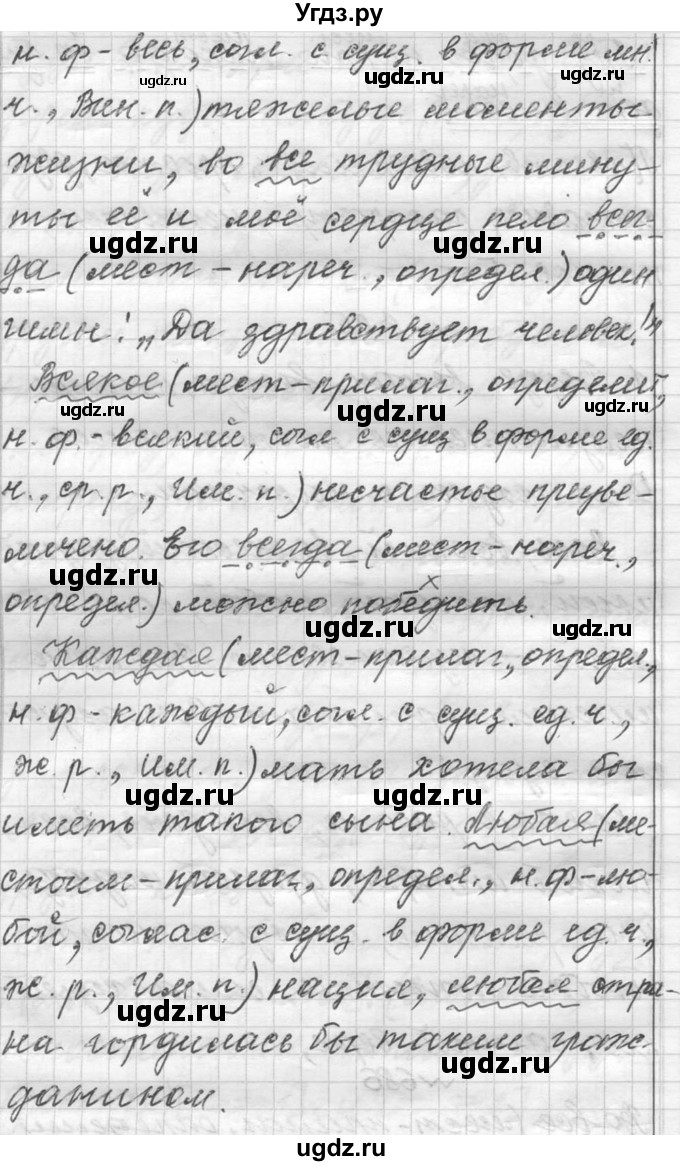 Угдз.ру
н. ф - весь, согл. с сущ. в форме мн.
ч., Вин. п.) тяжелые моменты
жизни, во все трудные мину-
ты её и моё сердце пело всег-
да (мест - нареч., определ.) один
гимн: „Да здравствует человек!"
Всякое (мест-прилаг., определит,
н. ф. - всякий, согл с сущ в форме ед.
ч., ср. р., Им. п.) несчастье преуве-
личено. Его всегда (мест-нареч.,
определ.) можно победить.
Каждая (мест-прилаг., определ.,
н. ф - каждый, согл. с сущ. ед. ч.,
ж. р., Им. п.) мать хотела бы
иметь такого сына. Любая (ме-
стоим-прилаг, определ., н. ф-лю-
бой, соглас. с сущ. в форме ед. ч.,
ж. р., Им. п.) нация, любая стра-
на гордилась бы таким граж-
данином.
ugdz.ru